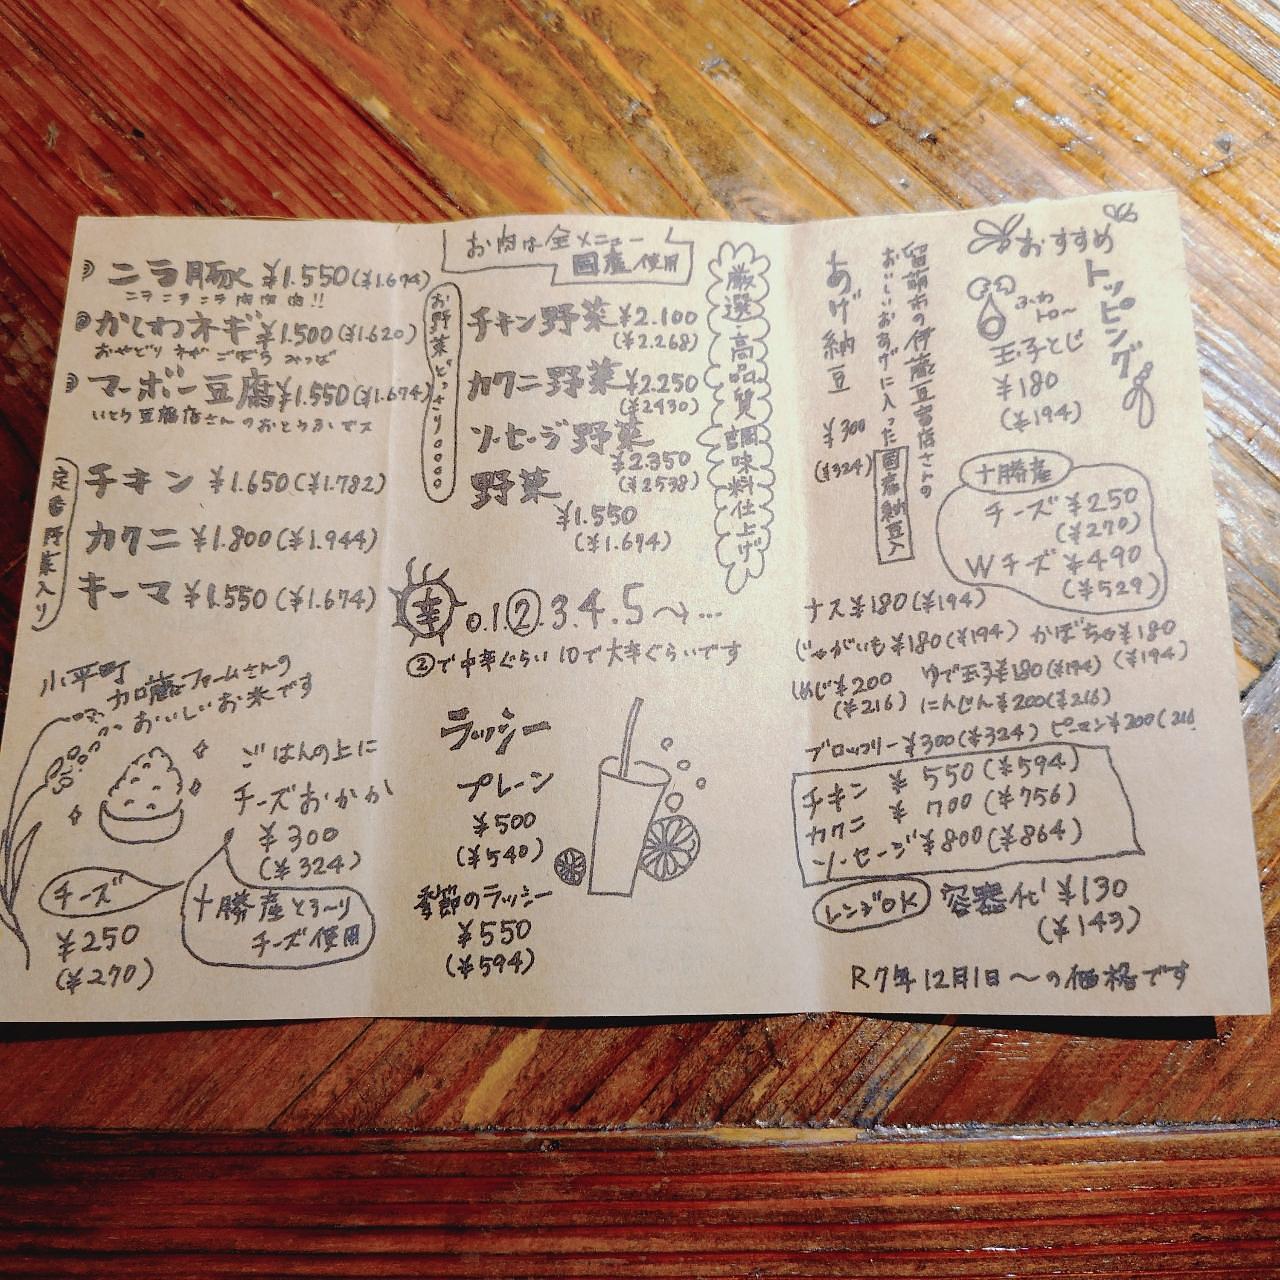 ニラ豚 ¥1.550(¥1.674)
ニラニラニラ肉肉肉!!
かしわネギ ¥1.500(¥1.620)
おやどり ネギ ごぼう みつば
マーボー豆腐 ¥1.550(¥1.674)
いとう豆腐店さんのおとうふでス
定番野菜入り
チキン ¥1.650(¥1.782)
カクニ ¥1.800(¥1.944)
キーマ ¥1.550(¥1.674)
小平町
加藤ファームさんの
おいしいお米です
ごはんの上に
チーズおかか
¥300
(¥324)
チーズ
¥250
(¥270)
十勝産とろ〜り
チーズ使用
お肉は全メニュー
国産使用
お野菜どっさり。。。。
チキン野菜 ¥2.100
(¥2.268)
カクニ野菜 ¥2.250
(¥2430)
ソーセージ野菜
¥2.350
(¥2538)
野菜
¥1.550
(¥1.674)
厳選高品質調味料仕上げ
辛 0.1.②.3.4.5〜…
②で中辛ぐらい 10で大辛ぐらいです
ラッシー
プレーン
¥500
(¥540)
季節のラッシー
¥550
(¥594)
おすすめ
トッピング
ふわ
トロ〜
玉子とじ
¥180
(¥194)
留萌市の伊藤豆富店さんの
おいしいおあげに入った国産納豆入
あげ納豆
¥300
(¥324)
十勝産
チーズ ¥250
(¥270)
Wチーズ ¥490
(¥529)
ナス ¥180(¥194)
じゃがいも ¥180(¥194) かぼちゃ ¥180
(¥194)
しめじ ¥200 ゆで玉子 ¥180(¥194)
(¥216) にんじん ¥200(¥216)
ブロッコリー ¥300(¥324) ピーマン ¥200(216
チキン ¥550(¥594)
カクニ ¥700(¥756)
ソーセージ ¥800(¥864)
レンジOK 容器代 ¥130
(¥143)
R7年12月1日〜の価格です